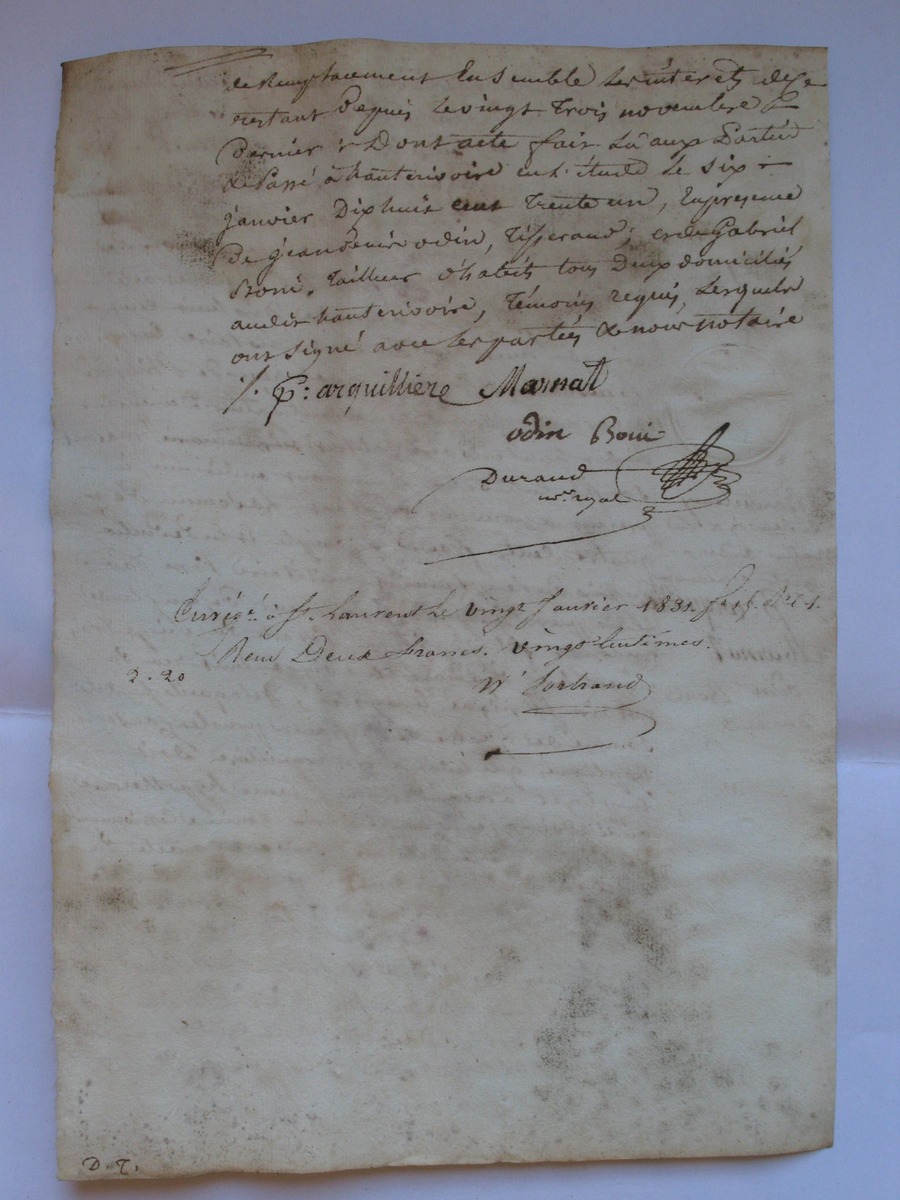 de Remplacement Ensemble les interets de ce
restant Depuis le vingt Trois novembre
Dernier; Dont acte fait Lû aux Parties
& Passé à hauterivoire en l'étude le six
janvier Dix huit cent Trente un, En presence
De jean denis odin, Tisserand; et de Gabriel
Boni, Tailleur d'habits tous Deux domiciliés
audit hauterivoire, Témoins requis, Lesquels
ont signé avec les parties & nous notaire
/. p: arquilliere Marnat
odin Boni
Durand
nre. royal
Enregé. à St. Laurent Le vingt Janvier 1831.
Reçu Deux francs. vingt Centimes.
2-20
D. T.